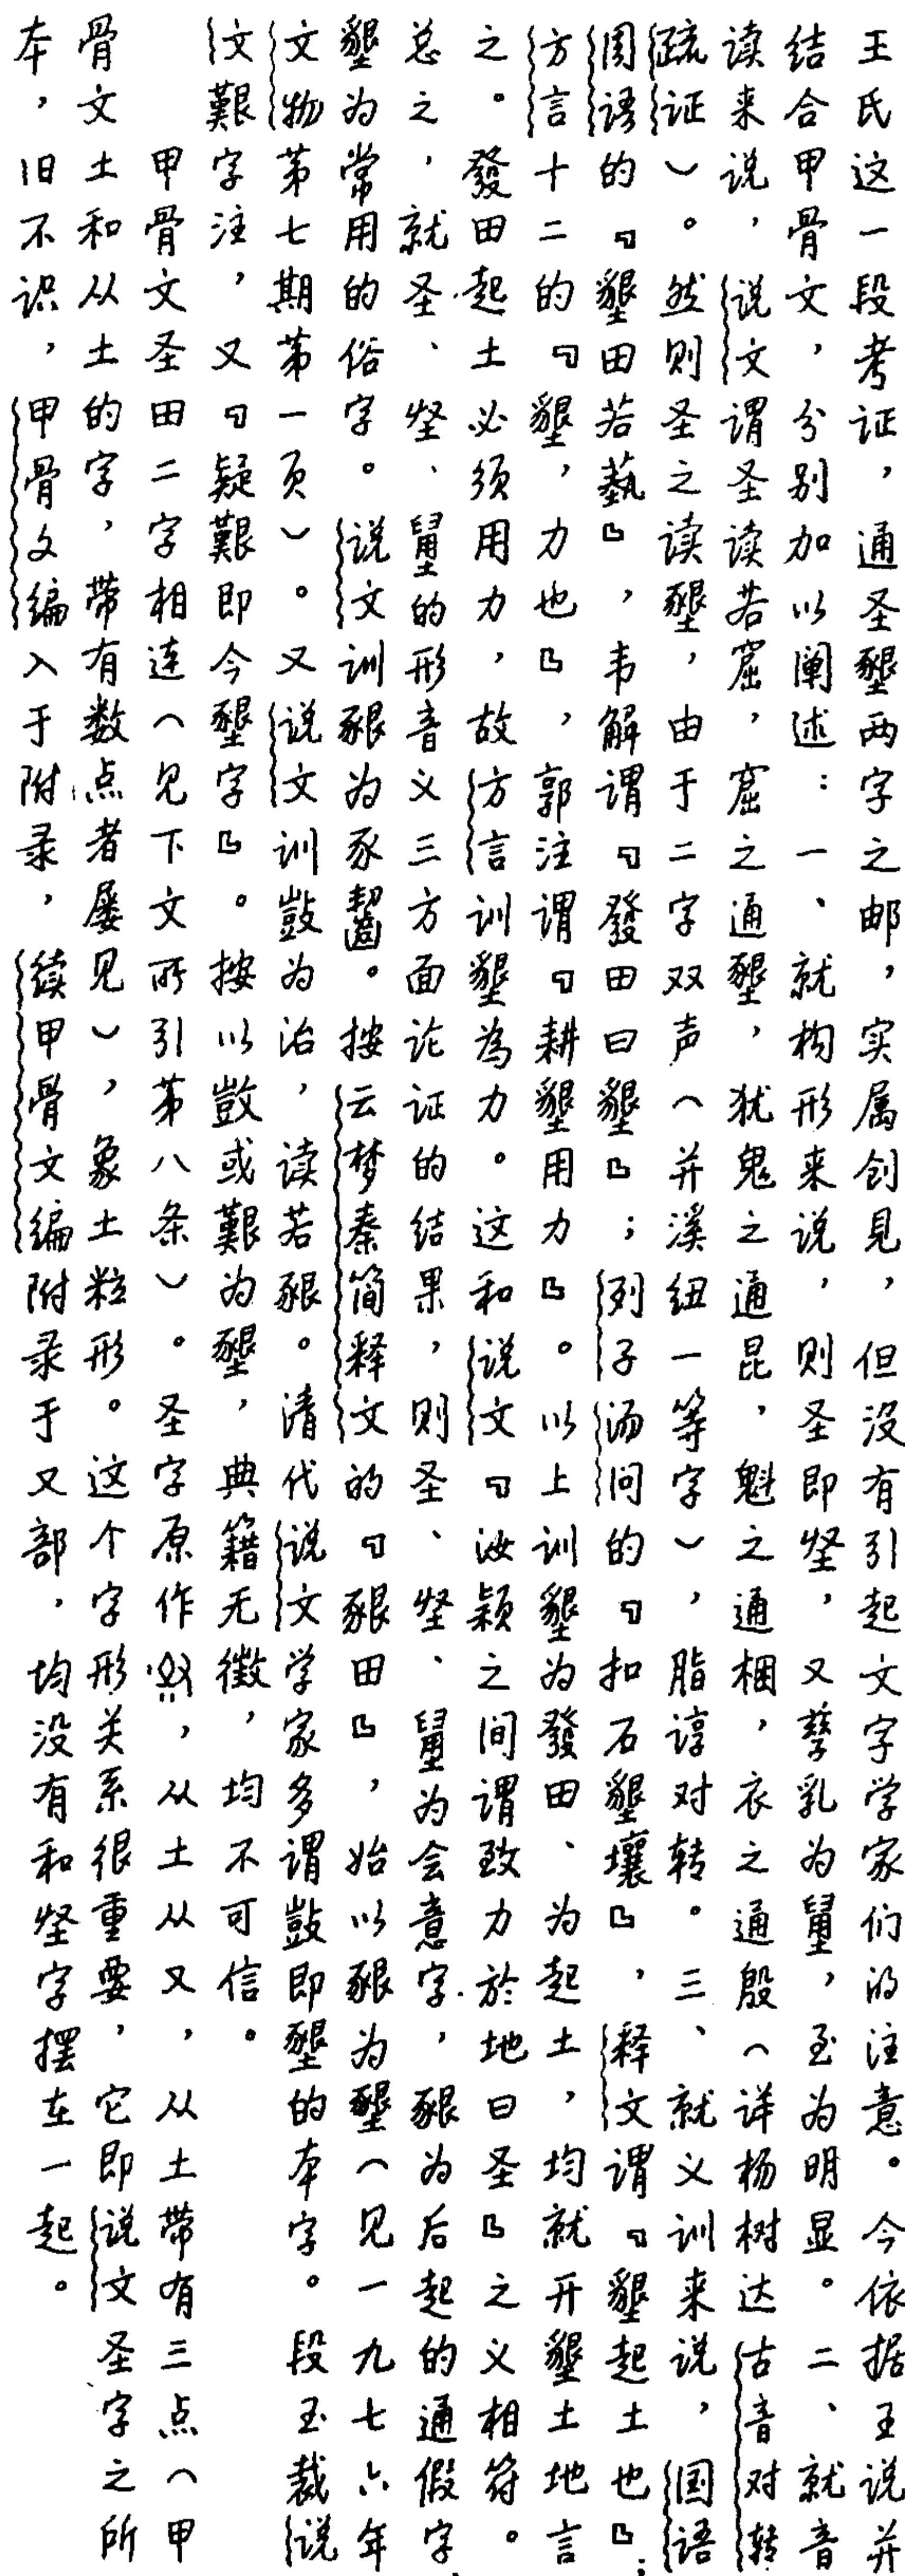 王氏这一段考证，通圣墾两字之邮，实属创见，但没有引起文字学家们的注意。今依据王说并
结合甲骨文，分别加以阐述：一、就构形来说，则圣即𡎐，又孳乳为𡔂，至为明显。二、就音
读来说，说文谓圣读若窟，窟之通墾，犹鬼之通昆，魁之通梱，衣之通殷（详杨树达古音对转
疏证）。然则圣之读墾，由于二字双声（并溪纽一等字），脂谆对转。三、就义训来说，国语
周语的『墾田若蓺』，韦解谓『發田曰墾』；列子汤问的『扣石墾壤』，释文谓『墾起土也』；
方言十二的『墾，力也』，郭注谓『耕墾用力』。以上训墾为發田、为起土，均就开墾土地言
之。發田起土必须用力，故方言训墾為力。这和说文『汝颍之间谓致力於地曰圣』之义相符。
总之，就圣、𡎐、𡔂的形音义三方面论证的结果，则圣、𡎐、𡔂为会意字，豤为后起的通假字，
墾为常用的俗字。说文训豤为豕齧。按云梦秦简释文的『豤田』，始以豤为墾（见一九七六年
文物第七期第一页）。又说文训㱾为治，读若豤。清代说文学家多谓㱾即墾的本字。段玉裁说
文艱字注，又『疑艱即今墾字』。按以㱾或艱为墾，典籍无徵，均不可信。
甲骨文圣田二字相连（见下文所引第八条）。圣字原作，从土从又，从土带有三点（甲
骨文土和从土的字，带有数点者屡见），象土粒形。这个字形关系很重要，它即说文圣字之所
本，旧不识，甲骨文编入于附录，续甲骨文编附录于又部，均没有和𡎐字摆在一起。